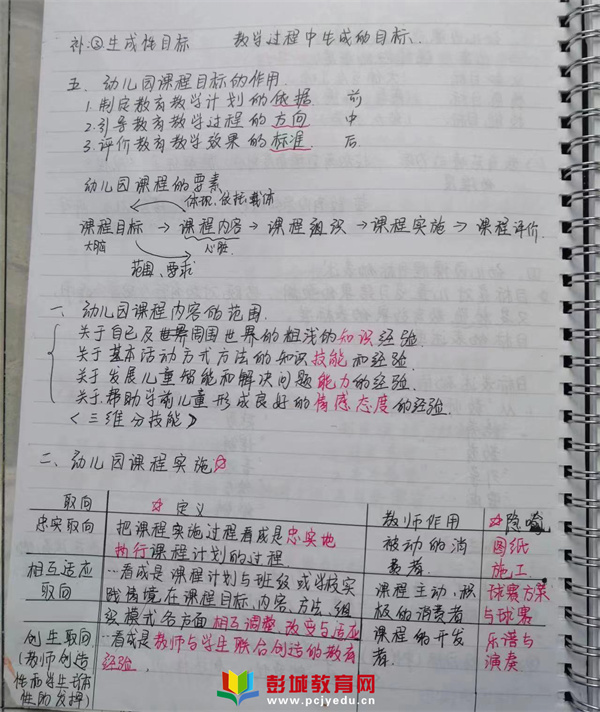 补:③生成性目标 教学过程中生成的目标.
五、幼儿园课程目标的作用.
1.制定教育教学计划的依据 前
2.引导教育教学过程的方向 中
3.评价教育教学效果的标准. 后.
幼儿园课程的要素
体现、依托、载体
课程目标 → 课程内容 → 课程组织 → 课程实施 → 课程评价.
大脑 心脏
范围、要求
一、幼儿园课程内容的范围.
关于自己及周围世界的粗浅的知识经验.
关于基本活动方式方法的知识技能和经验.
关于发展儿童智能和解决问题能力的经验.
关于帮助学前儿童形成良好的情感态度的经验.
<三维分技能>
二、幼儿园课程实施☆
取向 ☆定义 教师作用 ☆隐喻
忠实取向 把课程实施过程看成是忠实地执行课程计划的过程. 被动的消费者. 图纸施工.
相互适应取向 …看成是课程计划与班级或学校实践情境在课程目标、内容、方法、组织模式各方面相互调整、改变与适应 课程主动、积极的消费者 球赛方案与球赛
创生取向(教师创造性和学生主体性的发挥) …看成是教师与学生联合创造的教育经验. 课程的开发者. 乐谱与演奏
彭城教育网
www.pcjyedu.cn